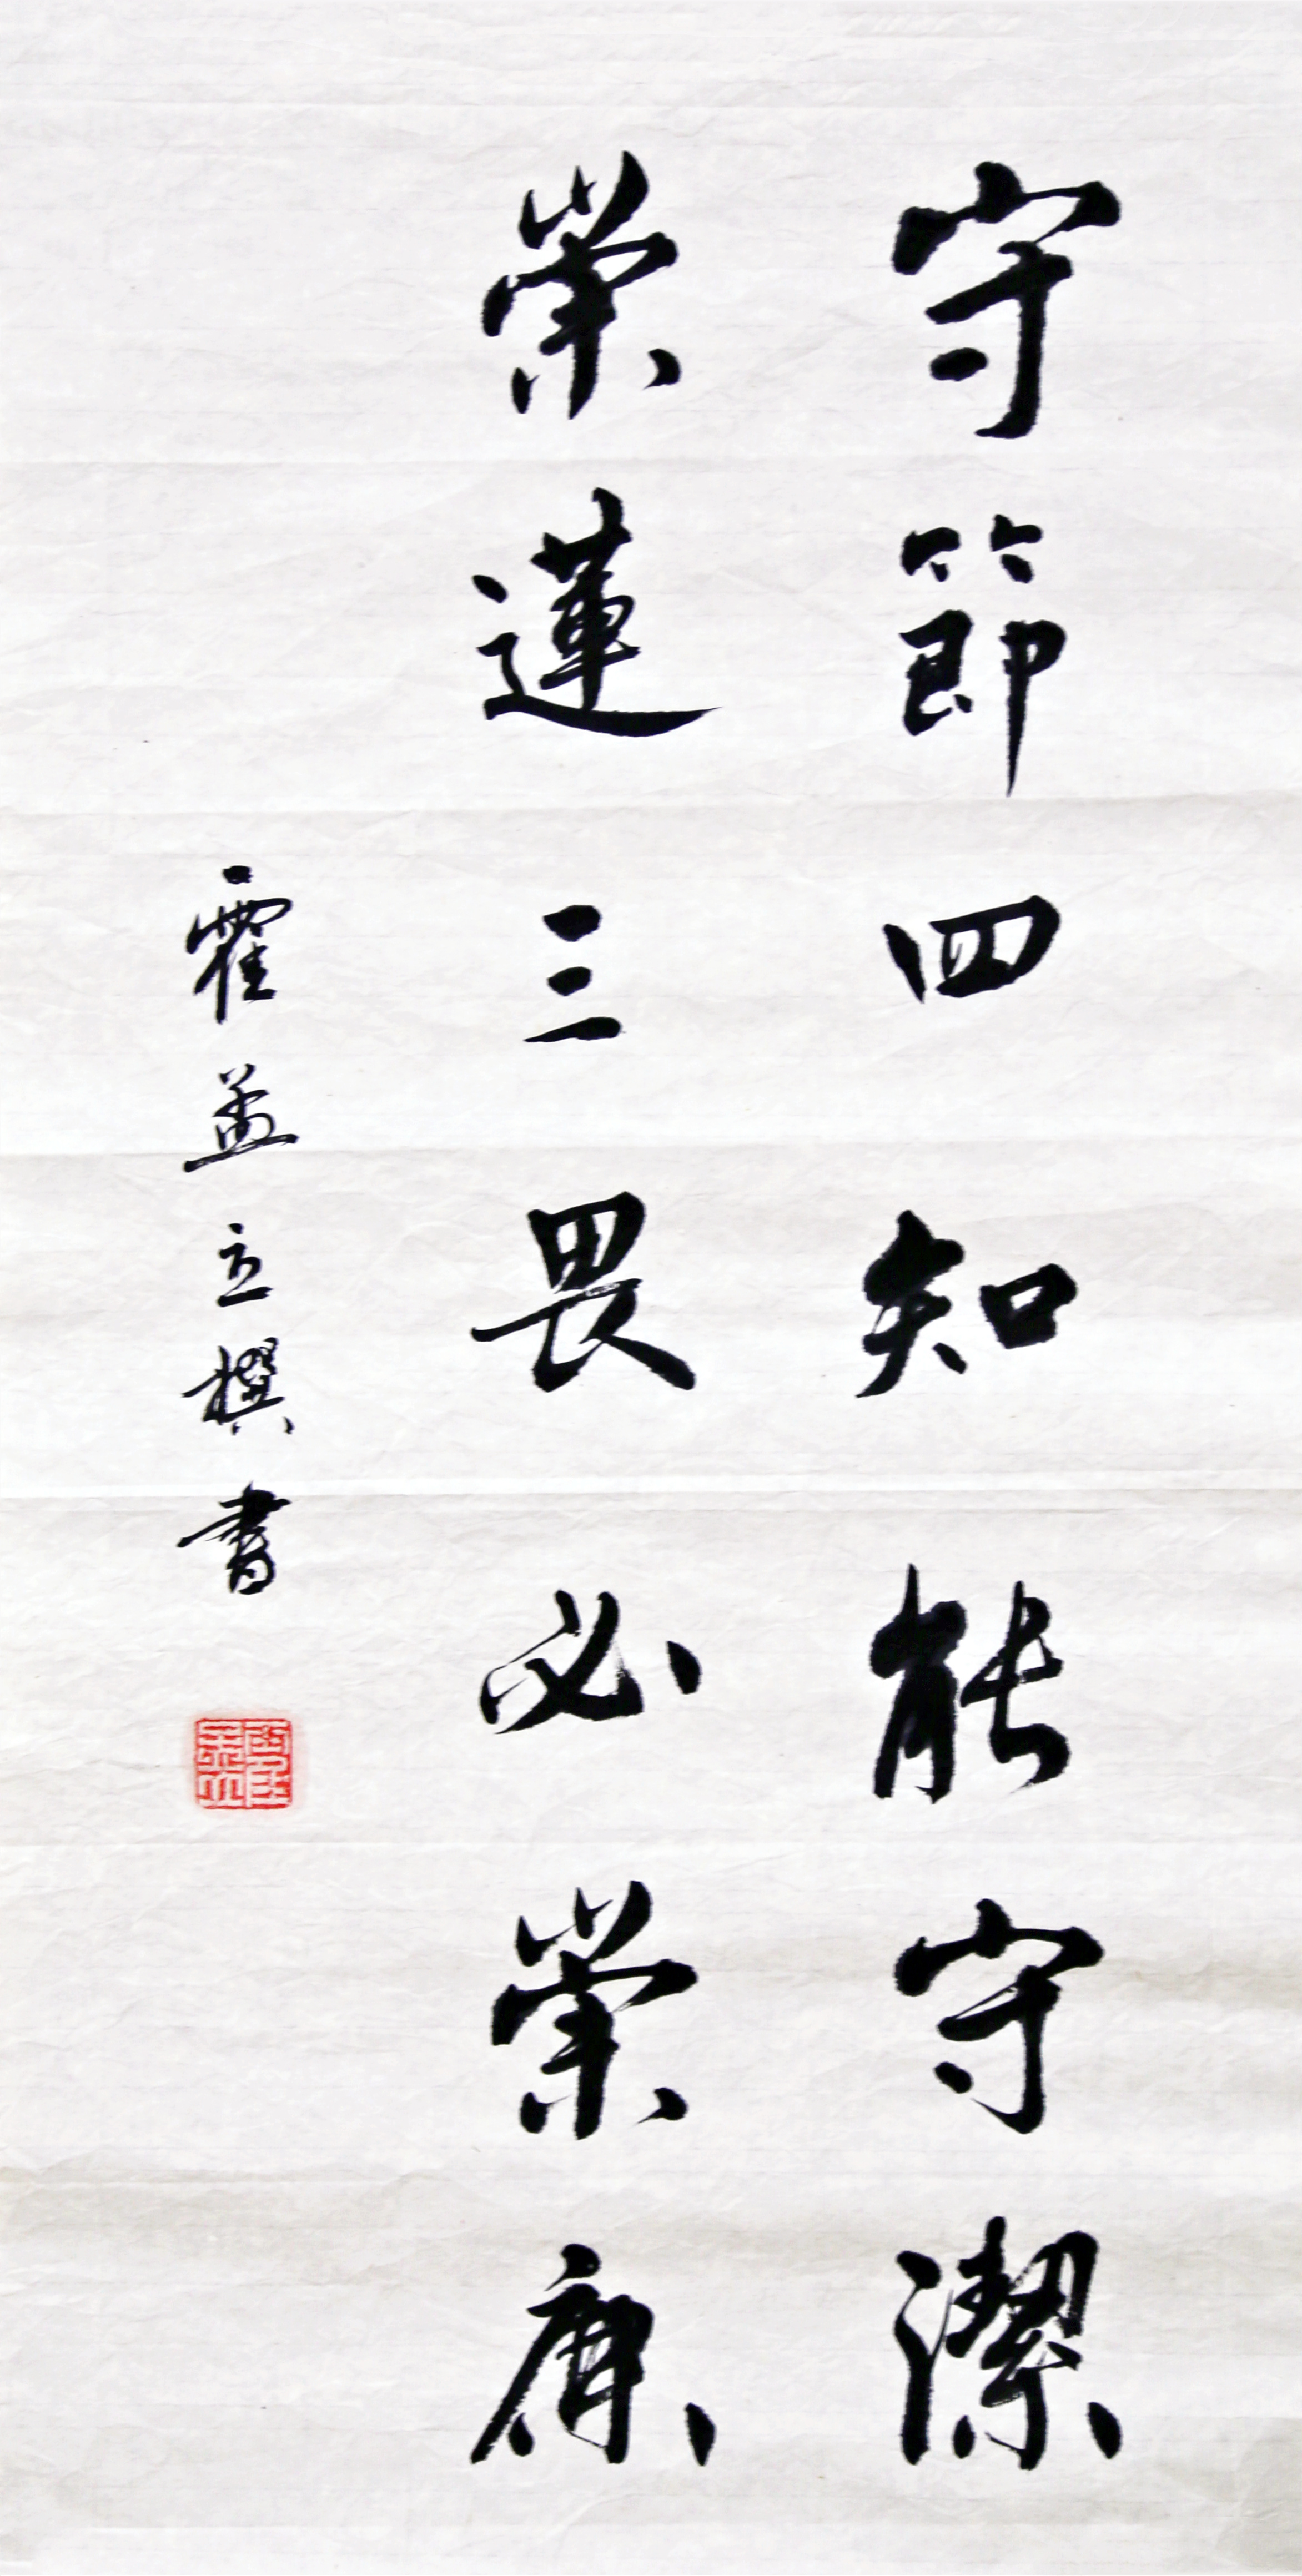 守節四知能守潔
榮蓮三畏必榮廉
霍立撰書